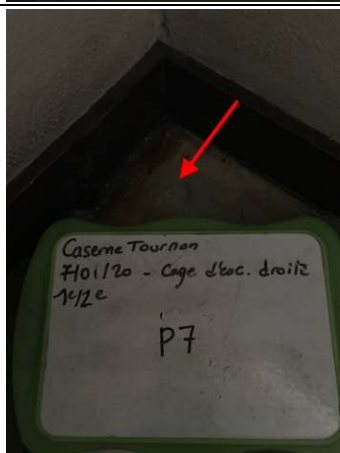 Caserne Tournon
7/01/20 - Cage d'esc. droite
1e/2e
P7